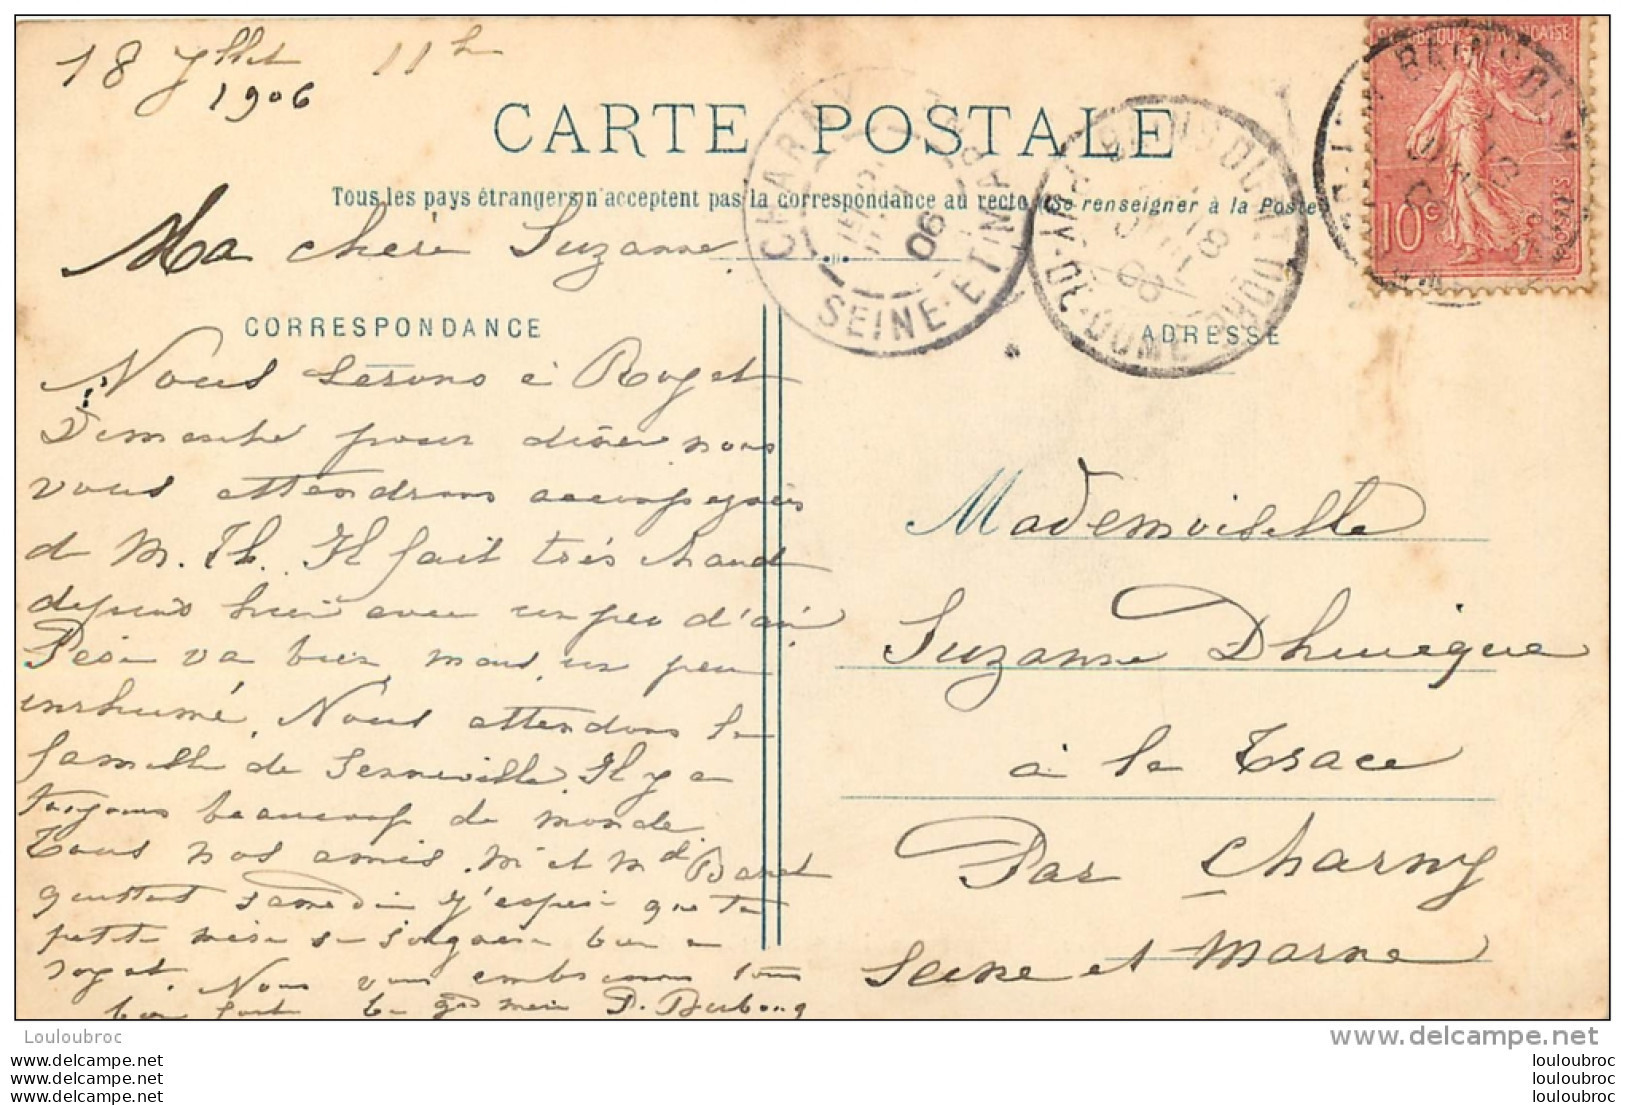 18 Jllet 11h
1906
CARTE POSTALE
Tous les pays étrangers n'acceptent pas la correspondance au recto (Se renseigner à la Poste)
RÉPUBLIQUE FRANÇAISE
10c
POSTES
CHARNY
SEINE-ET-MARNE
06
PUY-DE-DOME
18
Ma chère Suzanne
CORRESPONDANCE
ADRESSE
Nous serons à Royat
Dimanche pour diner nous
vous attendrons accompagnés
d M. Th. Il fait très chaud
depuis hier avec un peu d'air
va bien mais un peu
enrhumé. Nous attendons la
famille de Senneville. Il y a
toujours beaucoup de monde.
Tous nos amis. Mr et Md Baret
quittent samedi j'espère que ta
petite mère se soignera bien a
royat. Nous vous embrassons tous
bien fort ta gd mère D.
Mademoiselle
Suzanne Dhuicque
à la Trace
Par Charny
Seine et Marne
Louloubroc
www.delcampe.net
www.delcampe.net
www.delcampe.net
delcampe.net
louloubroc
louloubroc
louloubroc